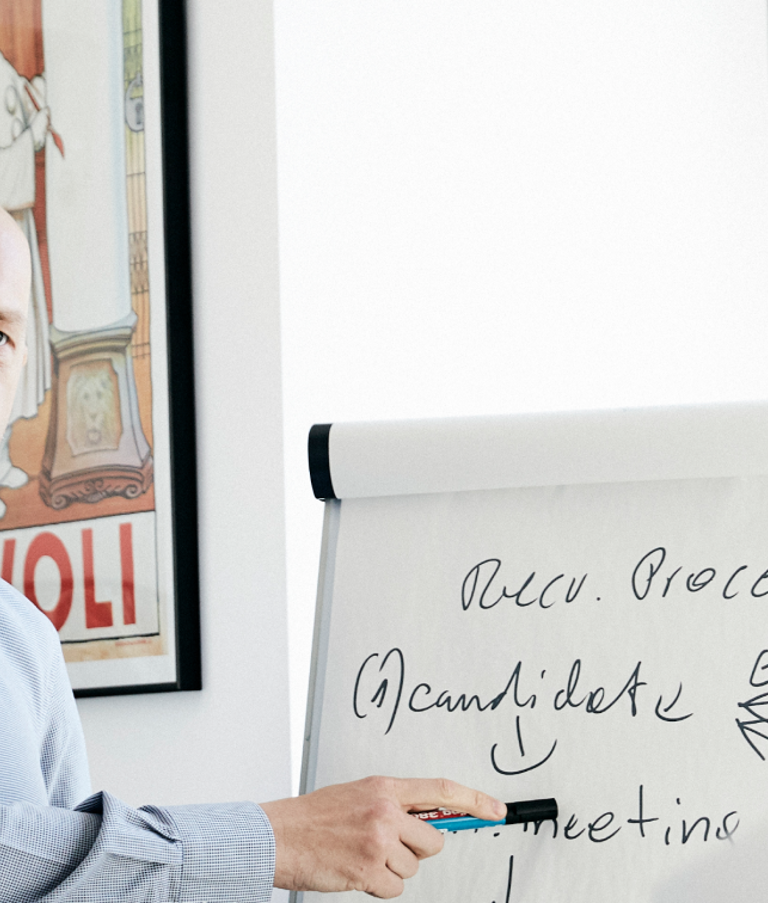 VOLI
Recr. Proce
(1) candidate
meeting